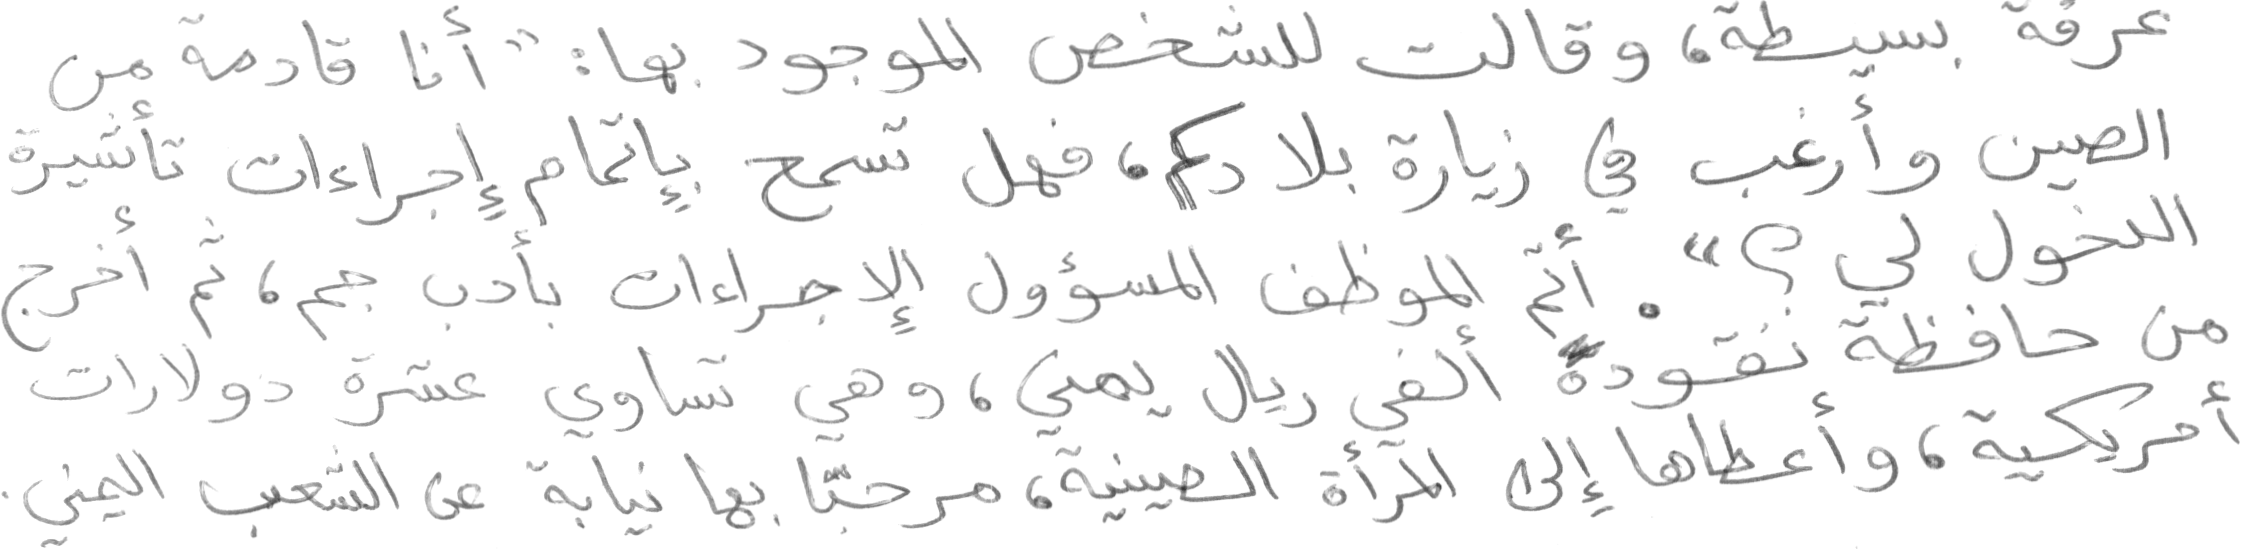 غرفة بسيطة، وقالت للشخص الموجود بها: "أنا قادمة من
الصين وأرغب في زيارة بلادكم، فهل تسمح بإتمام إجراءات تأشيرة
الدخول لي؟". أتمّ الموظف المسؤول الإجراءات بأدب جم، ثم أخرج
من حافظة نقوده ألفي ريال يمني، وهي تساوي عشرة دولارات
أمريكية، وأعطاها إلى المرأة الصينية، مرحبًا بها نيابة عن الشعب اليمني.